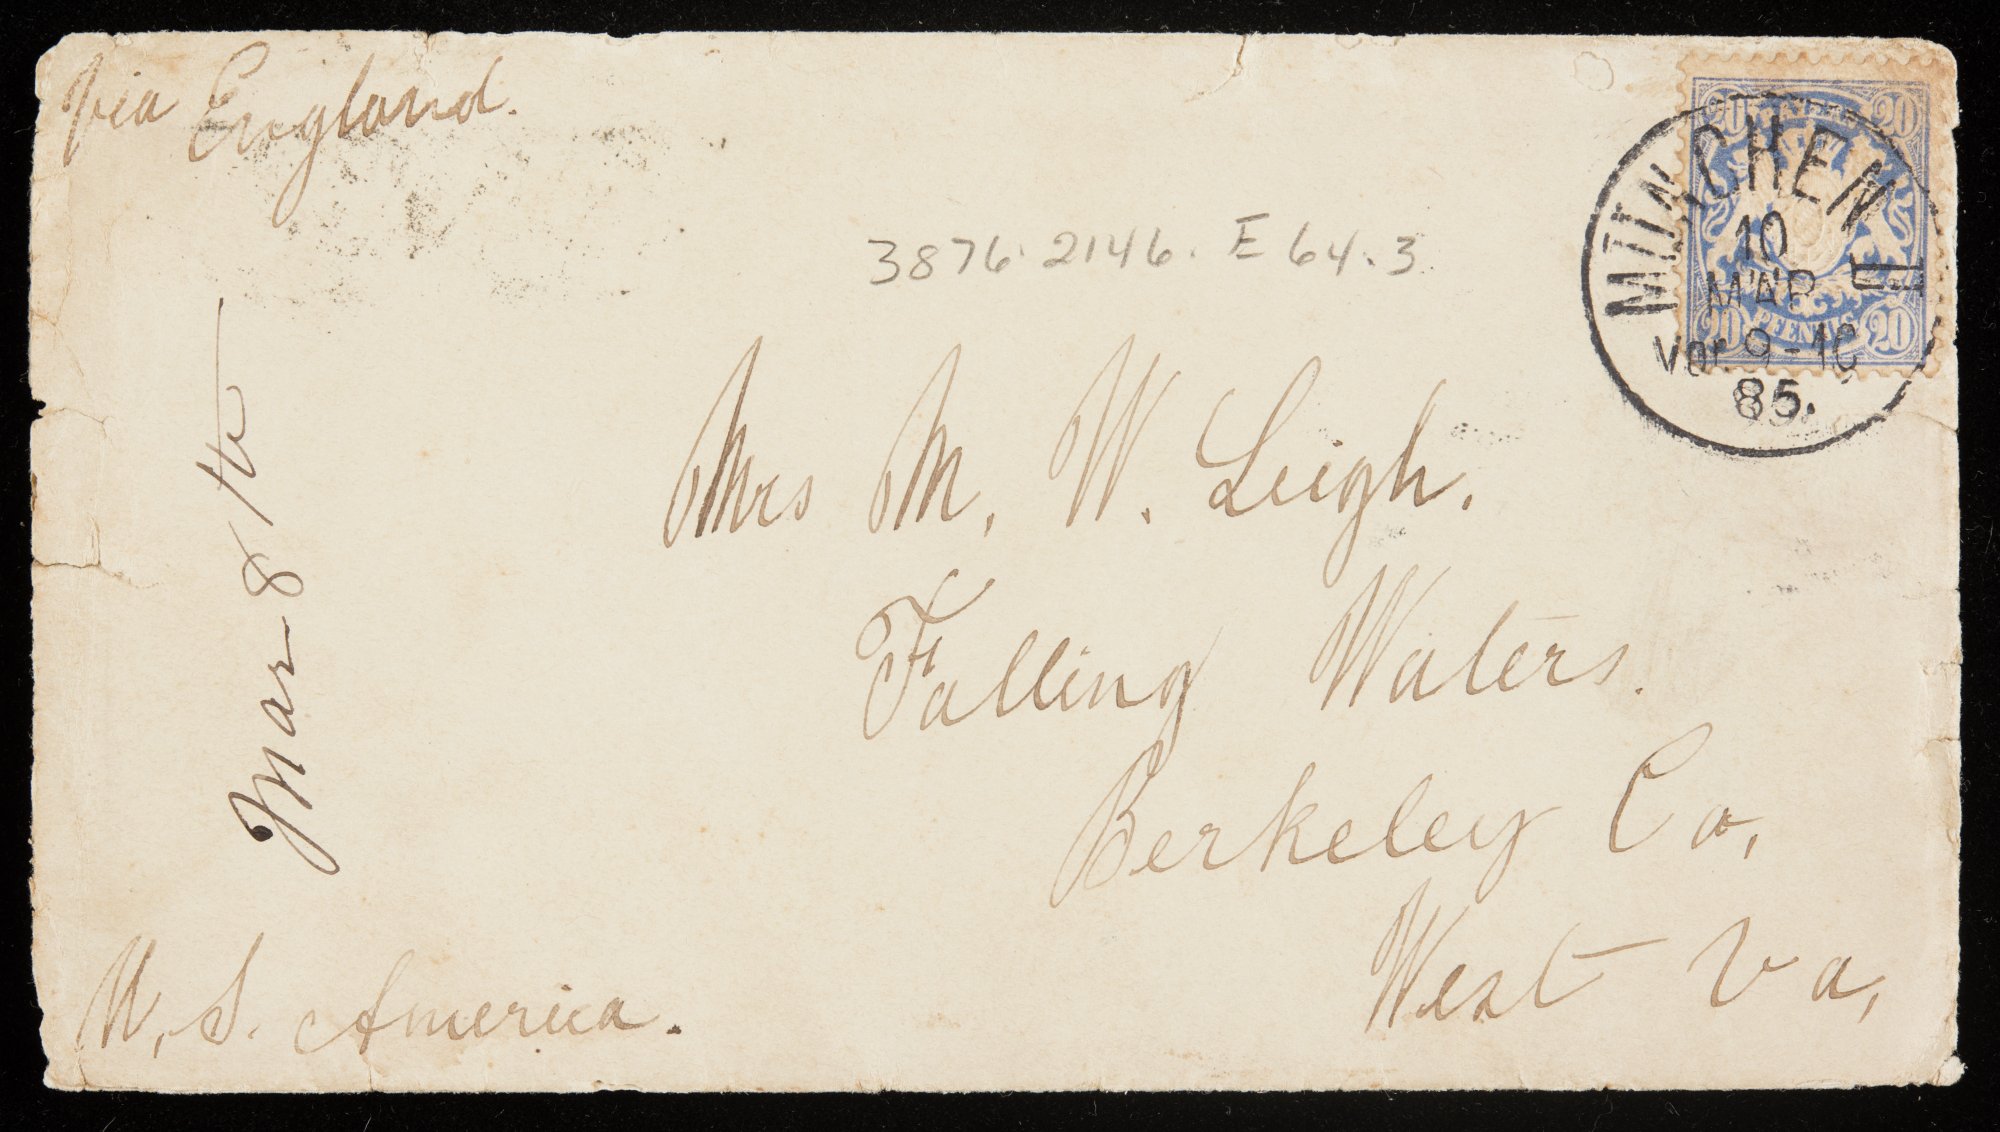 Via England.
3876.2146.E64.3
20 BAYERN 20
MÜNCHEN
10
MAR
II
Vor. 9-10
85.
20 PFENNIG 20
Mrs M. W. Leigh.
Falling Waters.
Berkeley Co,
West Va,
Mar 8th
U. S. America.